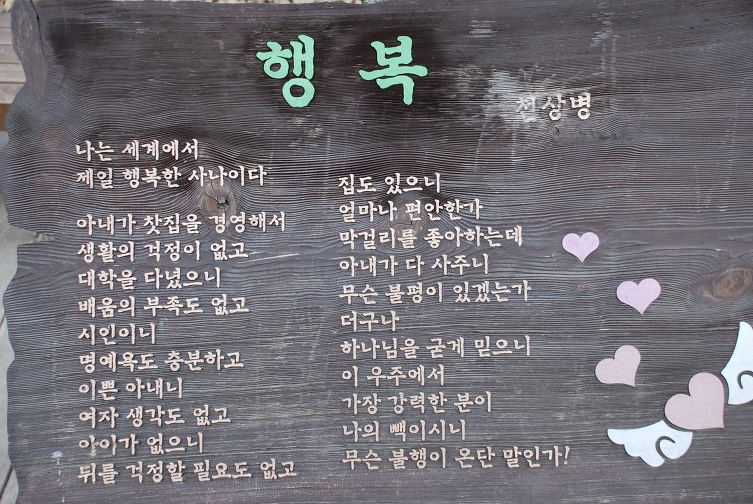 행복
천상병
나는 세계에서
제일 행복한 사나이다
아내가 찻집을 경영해서
생활의 걱정이 없고
대학을 다녔으니
배움의 부족도 없고
시인이니
명예욕도 충분하고
이쁜 아내니
여자 생각도 없고
아이가 없으니
뒤를 걱정할 필요도 없고
집도 있으니
얼마나 편안한가
막걸리를 좋아하는데
아내가 다 사주니
무슨 불평이 있겠는가
더구나
하나님을 굳게 믿으니
이 우주에서
가장 강력한 분이
나의 빽이시니
무슨 불행이 온단 말인가!